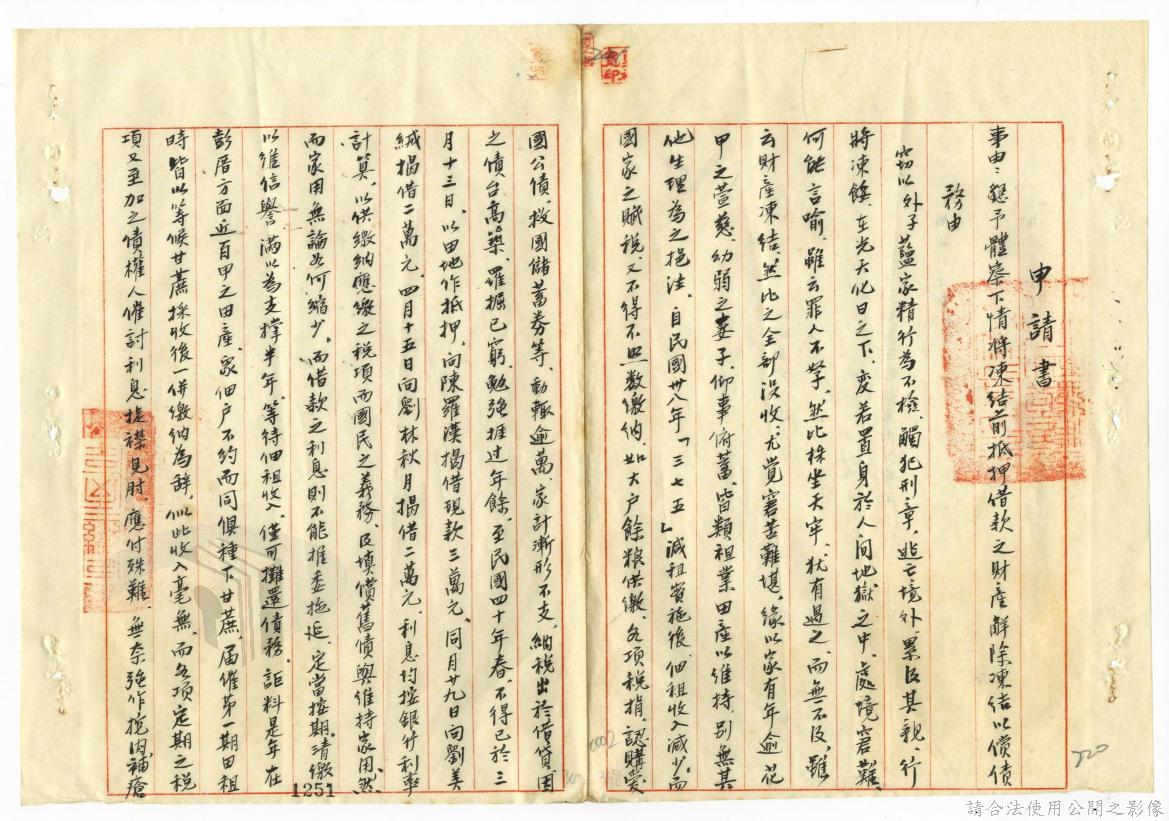 申請書
事由：懇予體察下情將凍結前抵押借款之財產解除凍結以償債
務由
竊以外子藍家精行為不檢觸犯刑章，逃亡境外，累及其親，行
將凍餒，在光天化日之下，變若置身於人間地獄之中，處境窘難，
何能言喻，雖云罪人不孥，然比株坐天牢，犹有過之，而無不及，雖
云財產凍結，然比之全部沒收，尤覺窘苦難堪，緣以家有年逾花
甲之萱慈，幼弱之妻子，仰事俯蓄，皆類祖業田產以維持，別無其
他生理為之挹注，自民國卅八年「三七五」減租實施後，佃租收入減少，而
國家之賦稅，又不得不照數繳納，如大戶餘粮供繳，各項稅捐，認購愛
國公債，救國儲蓄券等，動輒逾萬，家計漸形不支，納稅出於借貸，因
之債台高築，羅掘已窮，勉強捱过年餘，至民國四十年春，不得已於三
月十三日，以田地作抵押，向陳羅漢揭借現款三萬元，同月廿九日向劉美
緘揭借二萬元，四月十五日向劉林秋月揭借二萬元，利息均按銀行利率
計算，以供繳納應繳之稅項而國民之義務，及填償舊債與維持家用，然
而家用無論如何縮少，而借款之利息則不能推委拖延，定當按期清繳
以維信譽，滿以為支撐半年，等待佃租收入，僅可攤還債務，詎料是年在
彭厝方面近百甲之田產，眾佃戶不約而同俱種下甘蔗，届催第一期田租
時皆以等候甘蔗採收後一併繳納為辭，似此收入毫無，而各項定期之稅
項又至加之債權人催討利息捉襟見肘，應付殊難，無奈強作挖肉補瘡
1251
220
請合法使用公開之影像